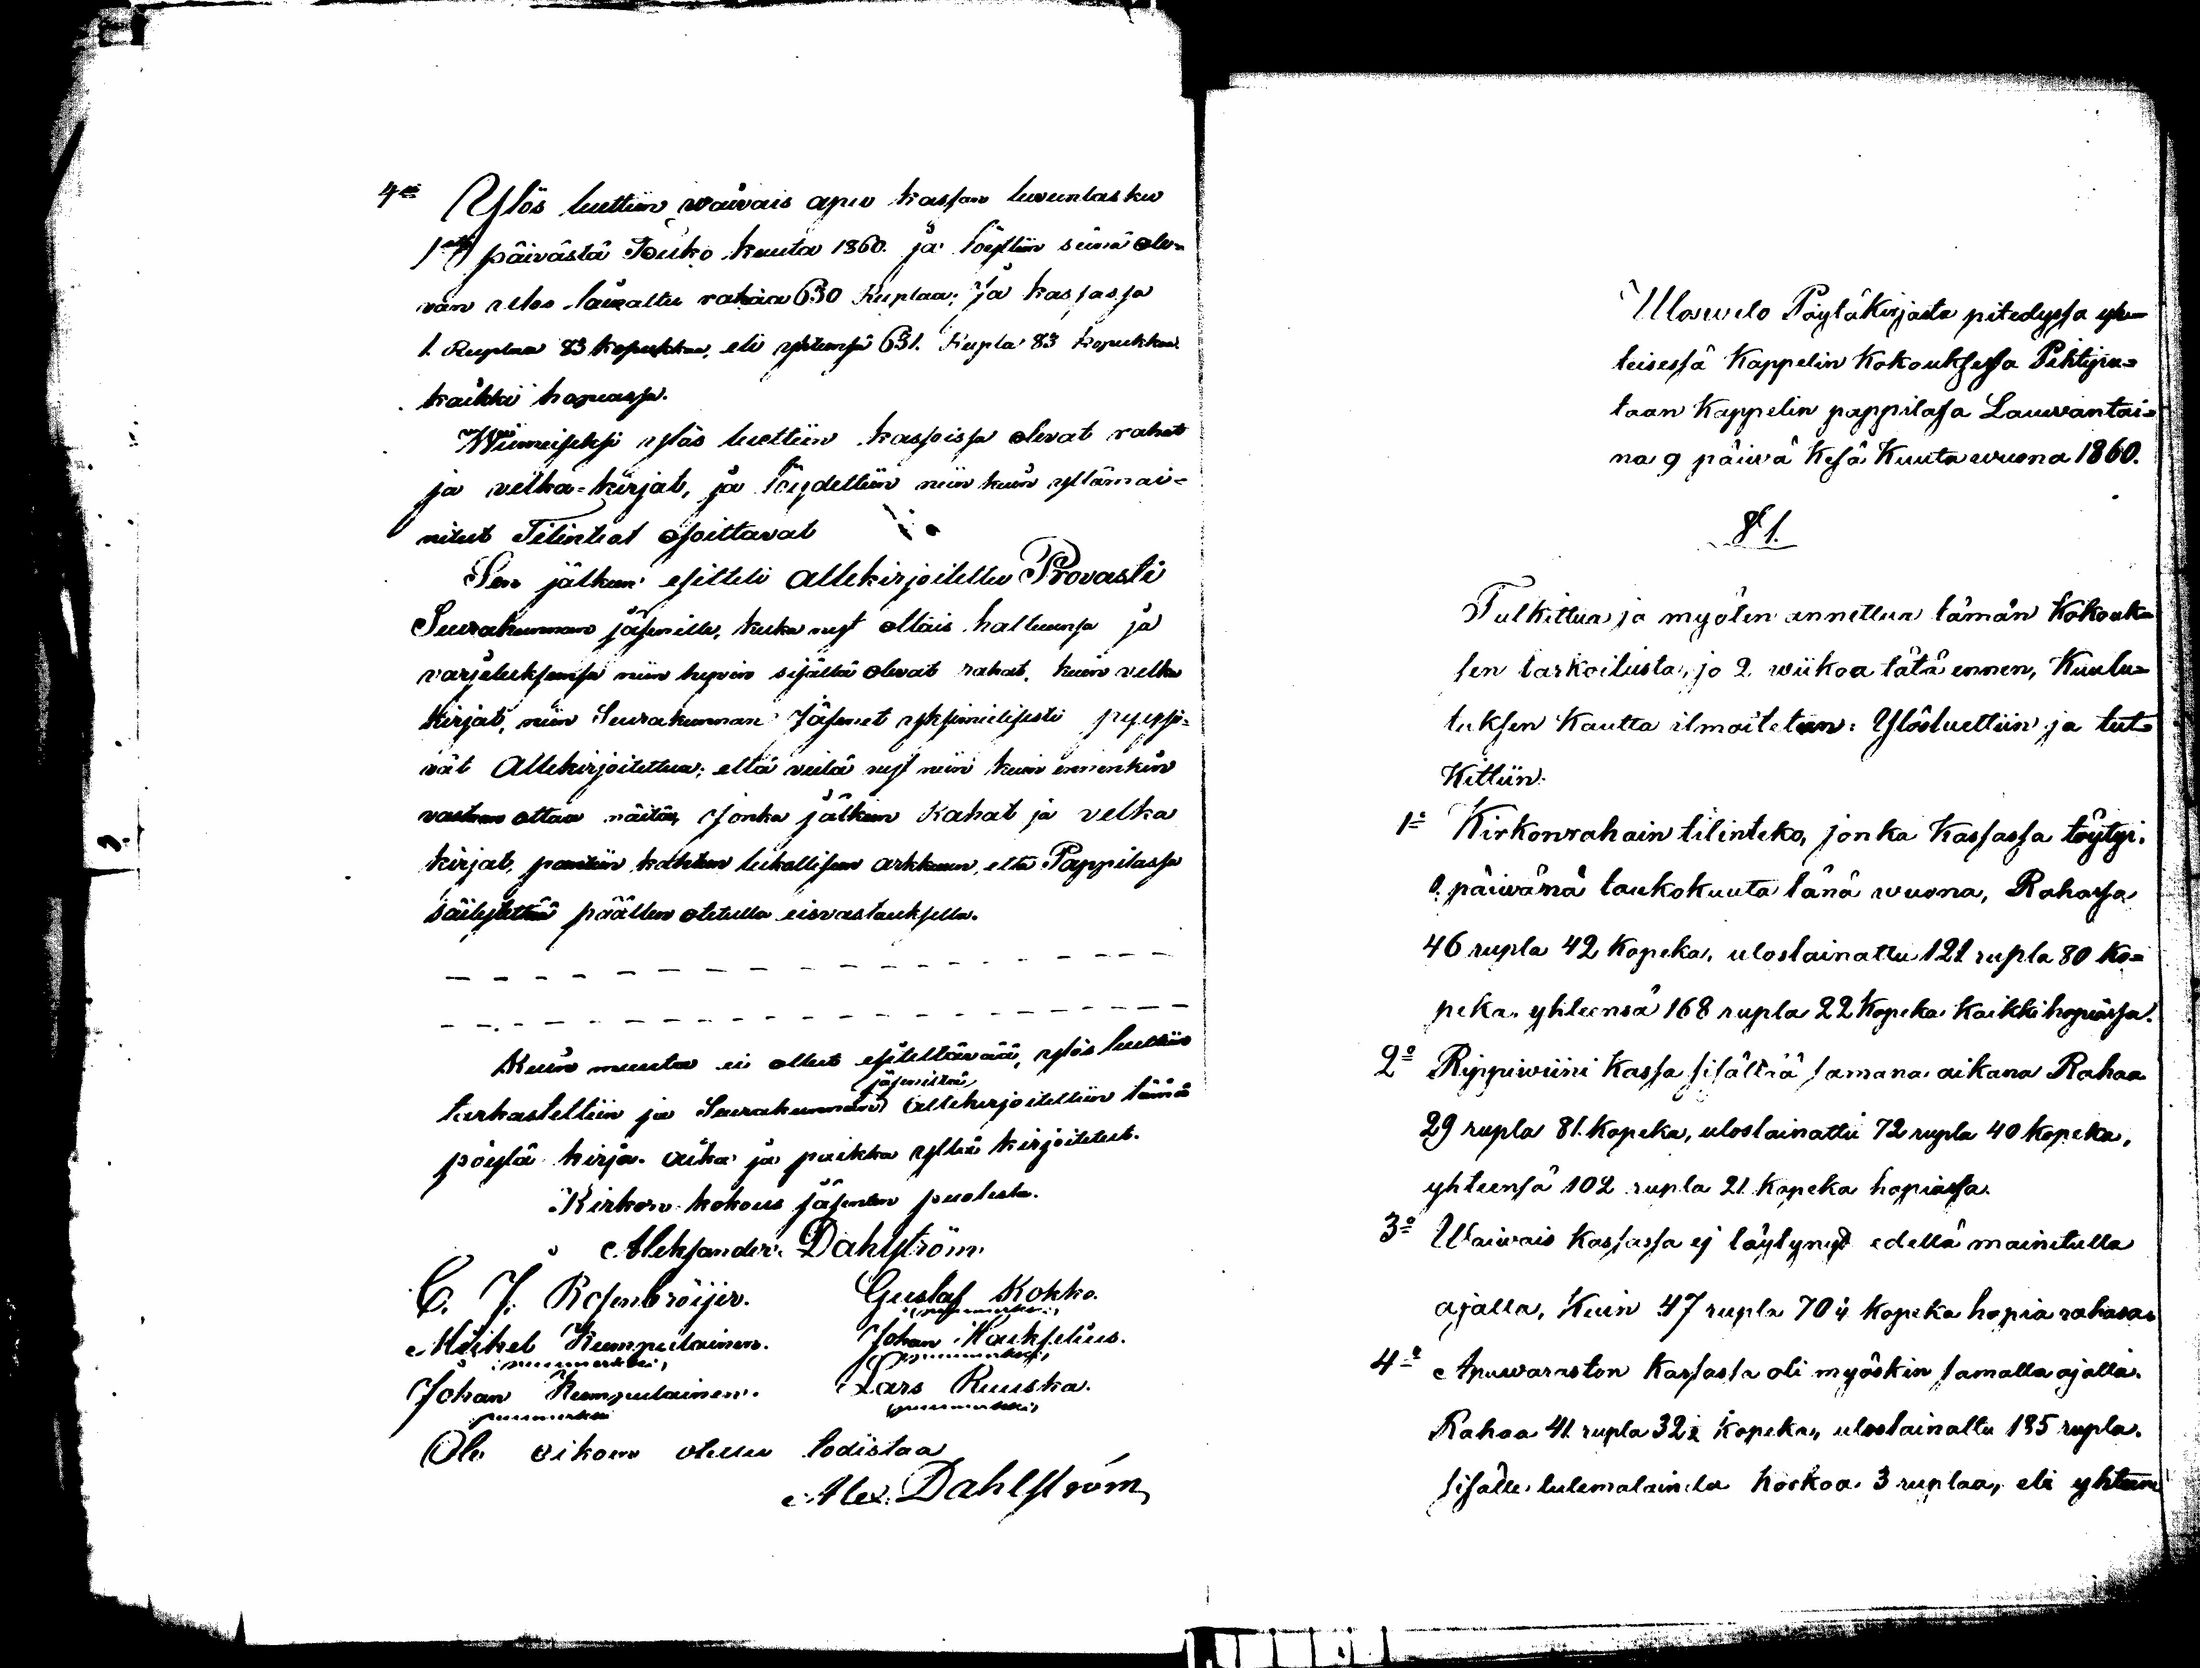 4o Ylös luettiin waivais apu kassan luvunlasku
1stä päivästä Touko kuuta 1860. ja löyttiin siinä ole-
van ulos lainattu rahaa 630 Ruplaa; ja kassassa
1. Ruplaa 83 kopekkaa, eli yhteensä 631. Rupla 83 kopekkaa
kaikki hopeassa.
Wiimeiseksi ylös luettiin kassoissa olevat rahat
ja velka-kirjat, ja löydettiin niin kuin yllämai-
nitut Tilinteot osoittavat
Sen jälkeen esitteli allekirjoitettu Provasti
Seurakunnan jäsenille, kuka nyt ottais haltuunsa ja
varjeluksensa niin hyvin sisällä olevat rahat, kuin velka
kirjat, niin Seurakunnan Jäsenet yksimielisesti pyysi-
vät Allekirjoitettua; että vielä nyt niin kuin ennenkin
vastaan ottaa näitä, Jonka jälkeen Rahat ja velka
kirjat, pantiin kahteen lukolliseen arkkuun, että Pappilassa
säilytettää päällen otetulla eisvastauksella.
Kuin muuta ei ollut esiteltävää, ylös luettiin
jäseniltä
tarkasteltiin ja Seurakunnan allekirjoitettiin tämä
pöytä kirja. aika ja paikka yllä kirjoitetut.
Kirkon kokous jäsenten puolesta.
Aleksander Dahlström
C. J. Rosenbröijer. Gustaf Kokko.
puumerkki
Mickel Kumpulainen. Johan Haukselius.
puumerkki, puumerkki,
Johan Kumpulainen. Lars Ruuska.
puumerkki puumerkki,
Ole oikein olleen todistaa
Alex. Dahlström
Ulosweto Pöytäkirjasta pitedyssä yh-
teisessä Kappelin Kokouksessa Pihtipu-
taan Kappelin pappilasa Lauwantai-
na 9 päiwä Kesä Kuuta wuona 1860.
§ 1.
Tulkittua ja myöten annettua tämän Kokouk-
sen tarkoitusta, jo 2 wiikoa tätä ennen, Kuulu-
tuksen Kautta ilmoitetun: Ylösluettiin ja tut-
Kittiin.
1o Kirkonrahain tilinteko, jonka Kassassa töytyi.
1. päiwänä toukokuuta tänä wuona, Rahassa
46 rupla 42 Kopeka, uloslainattu 121 rupla 80 Ko-
peka. yhteensä 168 rupla 22 Kopeka Kaikki hopiassa.
2o Rippiwiini Kassa sisältää samana aikana Rahaa
29 rupla 81. Kopeka, uloslainattu 72 rupla 40 Kopeka,
yhteensä 102 rupla 21 Kopeka hopiassa.
3o Waiwais Kassassa ej löytynyt edellä mainitulla
ajalla, Kuin 47 rupla 70 Kopeka hopia rahasa
4o Apuwaraston Kassassa oli myöskin samalla ajalla.
Rahaa 41 rupla 32 Kopeka, uloslainattu 135 rupla.
sisälle tulemalainda korkoa 3 ruplaa, eli yhteen